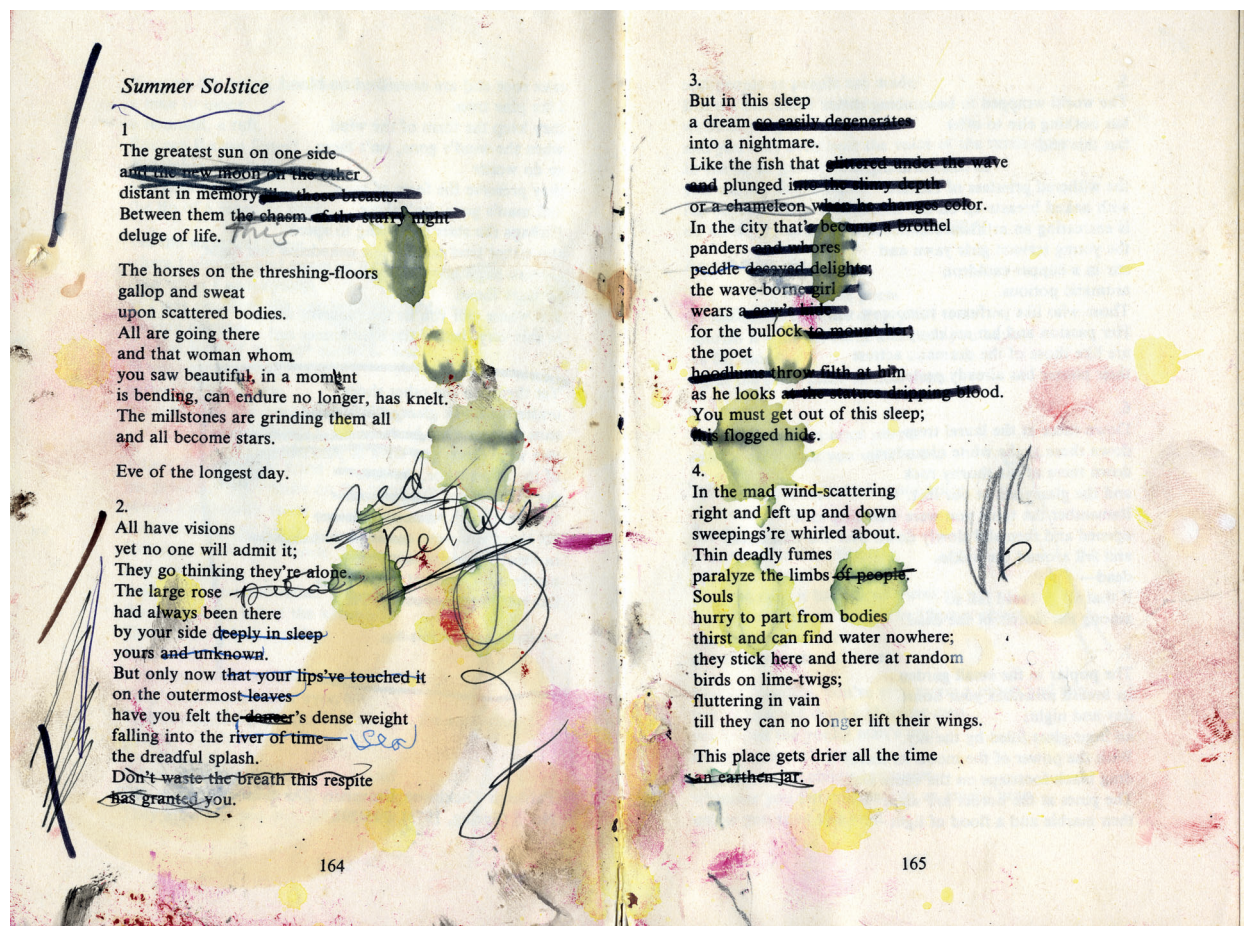 Summer Solstice
1
The greatest sun on one side
and the new moon on the other
distant in memory like those breasts.
Between them the chasm of the starry night
deluge of life. this
The horses on the threshing-floors
gallop and sweat
upon scattered bodies.
All are going there
and that woman whom
you saw beautiful, in a moment
is bending, can endure no longer, has knelt.
The millstones are grinding them all
and all become stars.
Eve of the longest day.
red
petals
2.
All have visions
yet no one will admit it;
They go thinking they're alone.
The large rose petal
had always been there
by your side deeply in sleep
yours and unknown.
But only now that your lips've touched it
on the outermost leaves
have you felt the dancer's dense weight
falling into the river of time— sea
the dreadful splash.
Don't waste the breath this respite
has granted you.
164
3.
But in this sleep
a dream so easily degenerates
into a nightmare.
Like the fish that glittered under the wave
and plunged into the slimy depth
or a chameleon when he changes color.
In the city that's become a brothel
panders and whores
peddle decayed delights;
the wave-borne girl
wears a cow's hide
for the bullock to mount her;
the poet
hoodlums throw filth at him
as he looks at the statues dripping blood.
You must get out of this sleep;
this flogged hide.
4.
In the mad wind-scattering
right and left up and down
sweepings're whirled about.
Thin deadly fumes
paralyze the limbs of people.
Souls
hurry to part from bodies
thirst and can find water nowhere;
they stick here and there at random
birds on lime-twigs;
fluttering in vain
till they can no longer lift their wings.
This place gets drier all the time
an earthen jar.
165